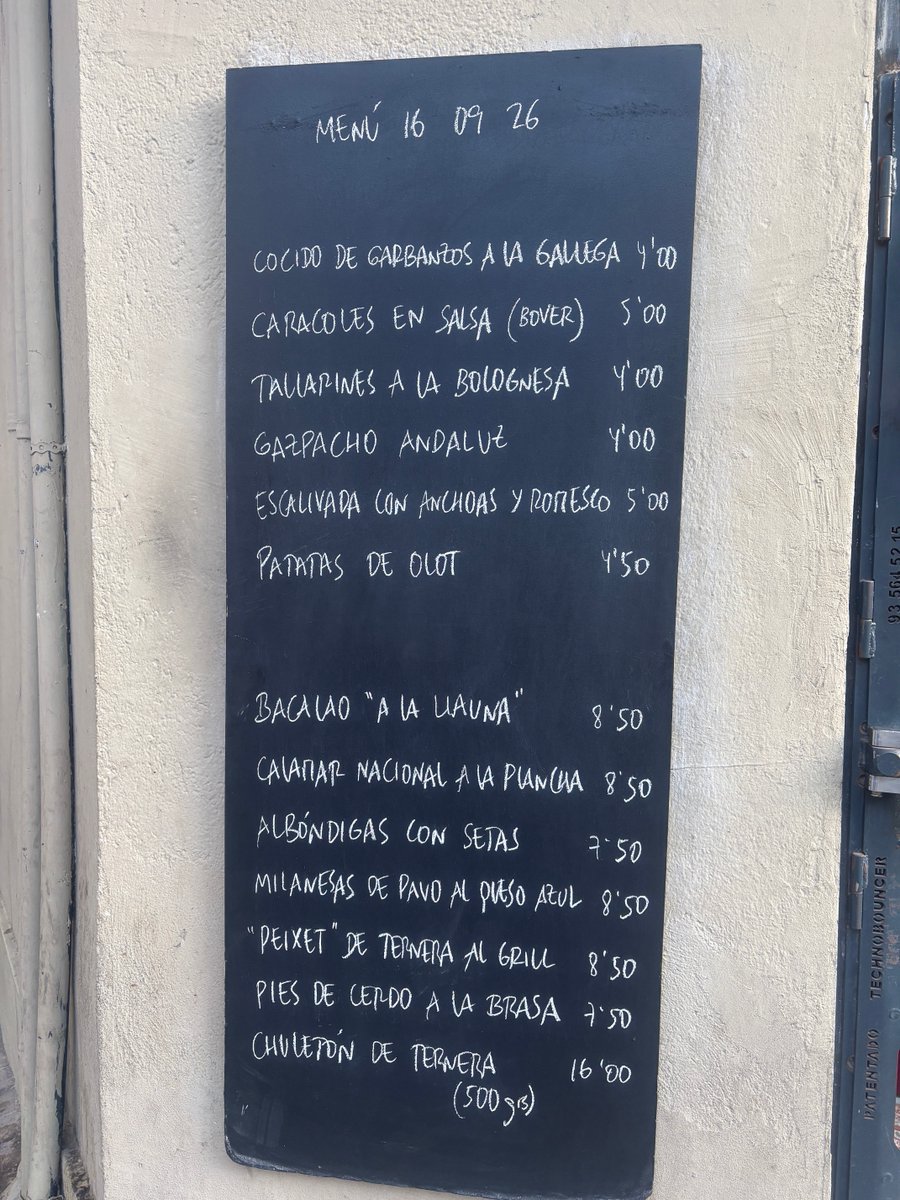 MENÚ 16 09 26
COCIDO DE GARBANZOS A LA GALLEGA 4'00
CARACOLES EN SALSA (BOVER) 5'00
TALLARINES A LA BOLOGNESA 4'00
GAZPACHO ANDALUZ 4'00
ESCALIVADA CON ANCHOAS Y ROMESCO 5'00
PATATAS DE OLOT 4'50
BACALAO "A LA LLAUNA" 8'50
CALAMAR NACIONAL A LA PLANCHA 8'50
ALBÓNDIGAS CON SETAS 7'50
MILANESAS DE PAVO AL QUESO AZUL 8'50
"PEIXET" DE TERNERA AL GRILL 8'50
PIES DE CERDO A LA BRASA 7'50
CHULETÓN DE TERNERA 16'00
(500 grs)
PATENTADO TECHNOBOUNCER 93 564 52 15